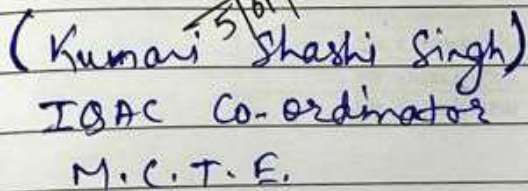 (Kumari Shashi Singh)
IQAC Co-ordinator
M.C.T.E.